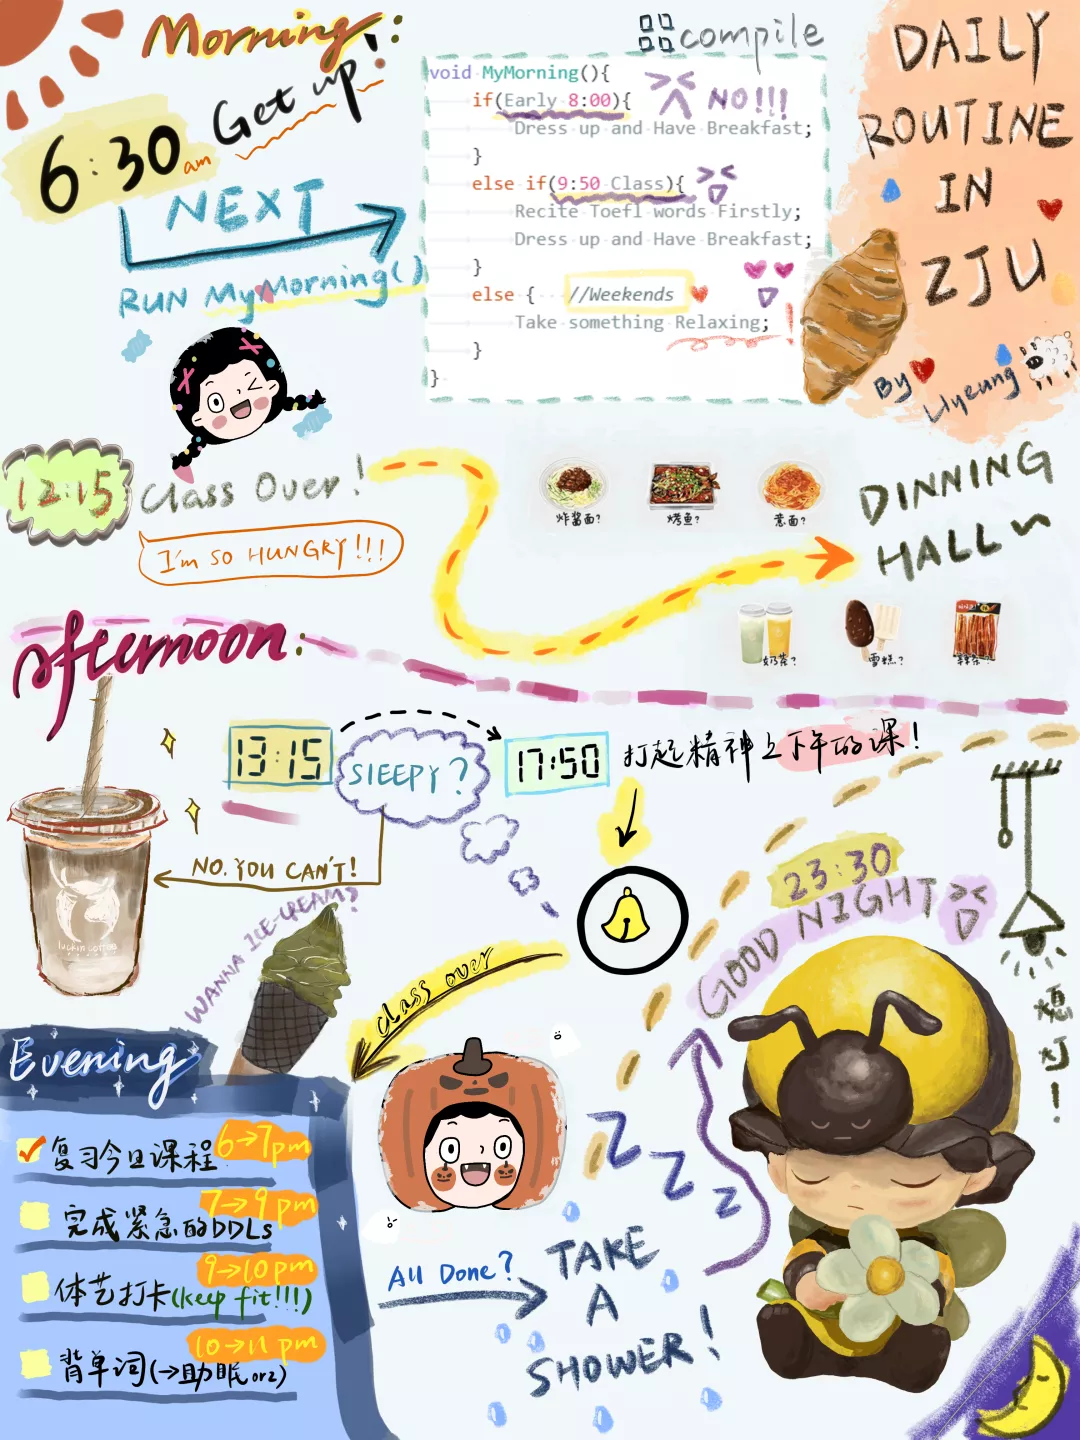 Morning:
Get up!
6:30 am
NEXT
RUN MyMorning()
compile
void MyMorning(){
if(Early 8:00){
NO!!!
Dress up and Have Breakfast;
}
else if(9:50 Class){
Recite Toefl words Firstly;
Dress up and Have Breakfast;
}
else { //Weekends
Take something Relaxing;
}
}
DAILY
ROUTINE
IN
ZJU
By
Liyeung
12:15
Class Over!
I'm SO HUNGRY!!!
炸酱面?
烤鱼?
意面?
DINNING
HALL
奶茶?
雪糕?
辣条?
afternoon:
13:15
SlEEPY?
17:50
打起精神上下午的课!
NO. YOU CAN'T!
luckin coffee
WANNA ICE-CREAM?
class over
23:30
GOOD NIGHT
熄灯!
Evening
复习今日课程 6→7pm
完成紧急的DDLs 7→9 pm
体艺打卡(keep fit!!!) 9→10pm
背单词(→助眠orz) 10→11 pm
All Done?
TAKE
A
SHOWER!
Z
Z
Z